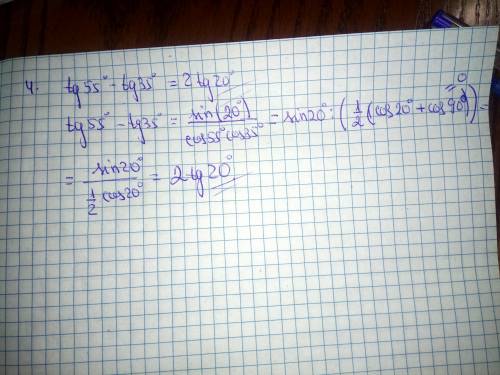 4. tg55° - tg35° = 2tg20°
tg55° - tg35° = sin(20°)/cos55°cos35° = sin20° : (1/2(cos20° + cos90°)) =
= sin20°/(1/2 cos20°) = 2tg20°